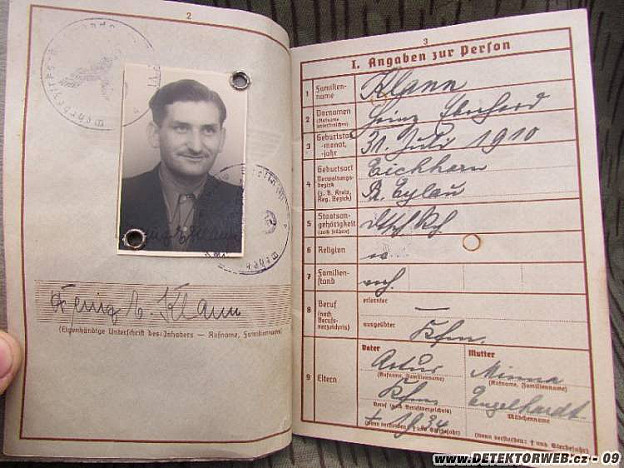 2
Heinz E. Klann
(Eigenhändige Unterschrift des Inhabers — Rufname, Familienname)
3
I. Angaben zur Person
1 Familien-
name
Klann
2 Vornamen
(Rufname
unterstreichen)
Heinz Eberhard
3 Geburtstag
-monat
-jahr
31. Juli 1910
4 Geburtsort
Verwaltungs-
bezirk
(z. B. Kreis,
Reg. Bezirk)
Eichhorn
Pr. Eylau
5 Staatsan-
gehörigkeit
(auch frühere)
6 Religion
7 Familien-
stand
8 Beruf
(nach
Berufs-
verzeichnis)
erlernter
—
ausgeübter
Kfm.
9 Eltern
Vater
Artur
(Rufname, Familienname)
Kfm
Beruf (nach Berufsverzeichnis)
† 1934
(wenn verstorben: † und Sterbejahr)
Mutter
Minna
(Rufname, Familienname)
Engelhardt
Mädchenname
(wenn verstorben: † und Sterbejahr)
www.DETEKTORWEB.cz - 09